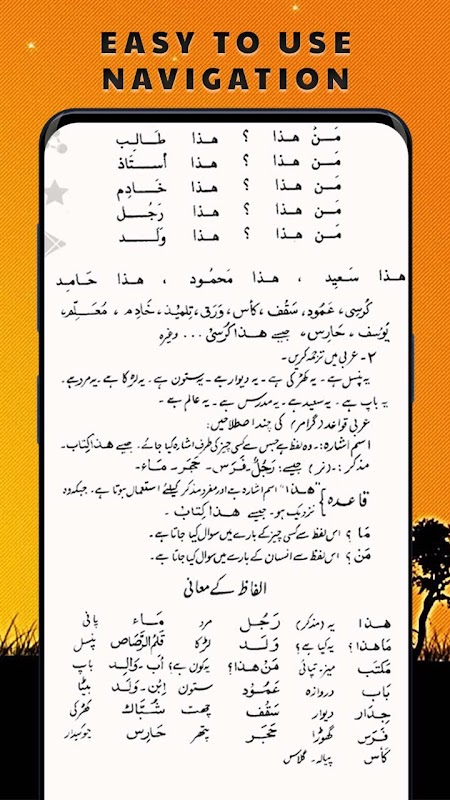 EASY TO USE
NAVIGATION
مَـنْ هذا ؟ هذا طَـالِـب
مَـن هذا ؟ هذا أسـتَاذ
مَـن هذا ؟ هذا خَـادِم
مَـن هذا ؟ هذا رَجُـل
مَـن هذا ؟ هذا وَلَـد
هذا سَعِيد ، هذا مَحمُود ، هذا حَامِد
كُرسِى، عَمُود، سَقْف، كَأس، وَرَق، تِلمِيذ، خَادِم، مُعَـلِّم،
يُوسُف، حَارِس، جیسے هٰذا كُرسِىٌّ ... وغیرہ
۲۔ عربی میں ترجمہ کریں۔
یہ پنسل ہے۔ یہ کھڑکی ہے۔ یہ دیوار ہے۔ یہ ستون ہے۔ یہ لڑکا ہے۔ یہ مرد ہے۔
یہ باپ ہے۔ یہ سعید ہے۔ یہ مدرس ہے۔ یہ عالم ہے۔
عربی قواعد (گرامر) کی چند اصطلاحیں:
اسم اشارہ:۔ وہ لفظ ہے جس سے کسی چیز کی طرف اشارہ کیا جائے۔ جیسے هذا كِتَاب۔
مذکر:۔ (نر) جیسے: رَجُلٌ۔ فَرَس۔ حَجَر۔ مَاء۔
قاعدہ } "هذا" اسم اشارہ ہے اور مفرد مذکر کیلئے استعمال ہوتا ہے۔ جبکہ وہ
نزدیک ہو۔ جیسے هذا كِتَاب۔
مَا ؟ اس لفظ سے کسی چیز کے بارے میں سوال کیا جاتا ہے۔
مَن ؟ اس لفظ سے انسان کے بارے میں سوال کیا جاتا ہے۔
الفاظ کے معانی
هذا یہ (مذکر) رَجُـل مرد مَـاء پانی
مَاهذا؟ یہ کیا ہے؟ وَلَـد لڑکا قَلَمُ الرَّصَاص پنسل
مَكتَب میز۔ تپائی مَنْ هذا؟ یہ کون ہے؟ أب ۔ وَالِـد باپ
بَاب دروازہ عَمُوْد ستون اِبْن۔ وَلَد بیٹا
جِدَار دیوار سَقْف چھت شُبَّاك کھڑکی
فَرَس گھوڑا حَجَر پتھر حَارِس چوکیدار
كَأس پیالہ۔ گلاس